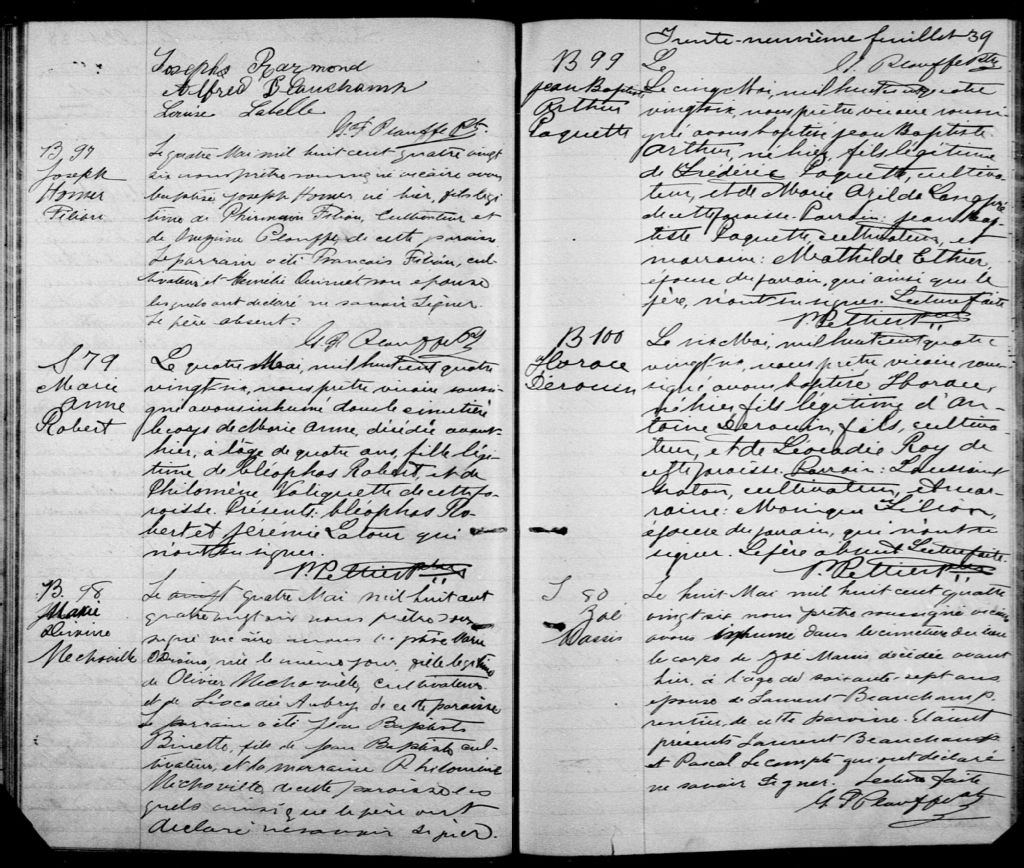 Joseph Raymond
Alfred Beauchamp
Louise Labelle
G. P. Plouffe Ptr.
B 97
Joseph
Homer
Filion
Le quatre Mai mil huit cent quatre vingt
six nous prêtre soussigné vicaire avons
baptisé Joseph Homer, né hier, fils légi
time de Filion, Cultivateur et
de Plouffe, de cette paroisse
Le parrain a été Francois Filion, cul
tivateur et Ouimet son epouse
lesquels ont déclaré ne savoir signer.
Le père absent.
G. P. Plouffe Ptr
S 79
Marie
Anne
Robert
Le quatre Mai, mil huit cent quatre
vingt-six, nous prêtre vicaire soussi-
gné avons inhumé dans le cimetière
le corps de Marie Anne, décédée avant-
hier, à l'âge de quatre ans, fille légi-
time de Cléophas Robert, et de
Philomène Valiquette de cette pa-
roisse. Présents: Cléophas Ro-
bert et Jérémie Latour qui
n'ont su signer.
B. 98
Marie
Mechoville
Le quatre Mai mil huit cent
quatre vingt six nous prêtre sous
signé vicaire avons Marie
née le meme jour, fille légitime
de Olivier Mechoville, Cultivateur
et de Léocadie Aubry de cette paroisse
Le parrain a été Jean Baptiste
Binette, fils de Jean Baptiste cul-
tivateur, et la marraine Philomène
Mechoville de cette paroisse les
quels ainsi que le père ont
declaré ne savoir signer.
Trente-neuvième feuillet 39
G. P. Plouffe Ptr
B 99
Jean Baptiste
Arthur
Paquette
Le cinq Mai, mil huit cent quatre
vingt six, nous prêtre vicaire soussi
gné avons baptisé Jean Baptiste
Arthur, né hier, fils légitime
de Fréderic Paquette, cultiva-
teur, et de Marie Azilda Longpré
de cette paroisse. Parrain: Jean Bap-
tiste Paquette cultivateur, et
marraine: Mathilde Ethier,
épouse du parrain, qui ainsi que le
père, n'ont su signer. Lecture faite
B 100
Horace
Derouin
Le six Mai, mil huit cent quatre
vingt six, nous prêtre vicaire sous-
signé avons baptisé Horace,
né hier, fils légitime d'An-
toine Derouin, fils, cultiva-
teur, et de Léocadie Roy de
cette paroisse. Parrain: Toussaint
cultivateur, et mar-
raine: Monique Filion,
épouse du parrain, qui n'ont su
signer. Le père absent. Lecture faite.
S 80
Zoé
Le huit Mai mil huit cent quatre
vingt six nous prêtre soussigné vicaire
avons inhumé dans le cimetière
le corps de Zoé décédée avant
hier, à l'âge de soixante-sept ans
épouse de Laurent Beauchamp,
rentier, de cette paroisse. Etaient
présents Laurent Beauchamp
et Pascal Lecompte qui ont déclaré
ne savoir signer. Lecture faite
G. P. Plouffe Ptr